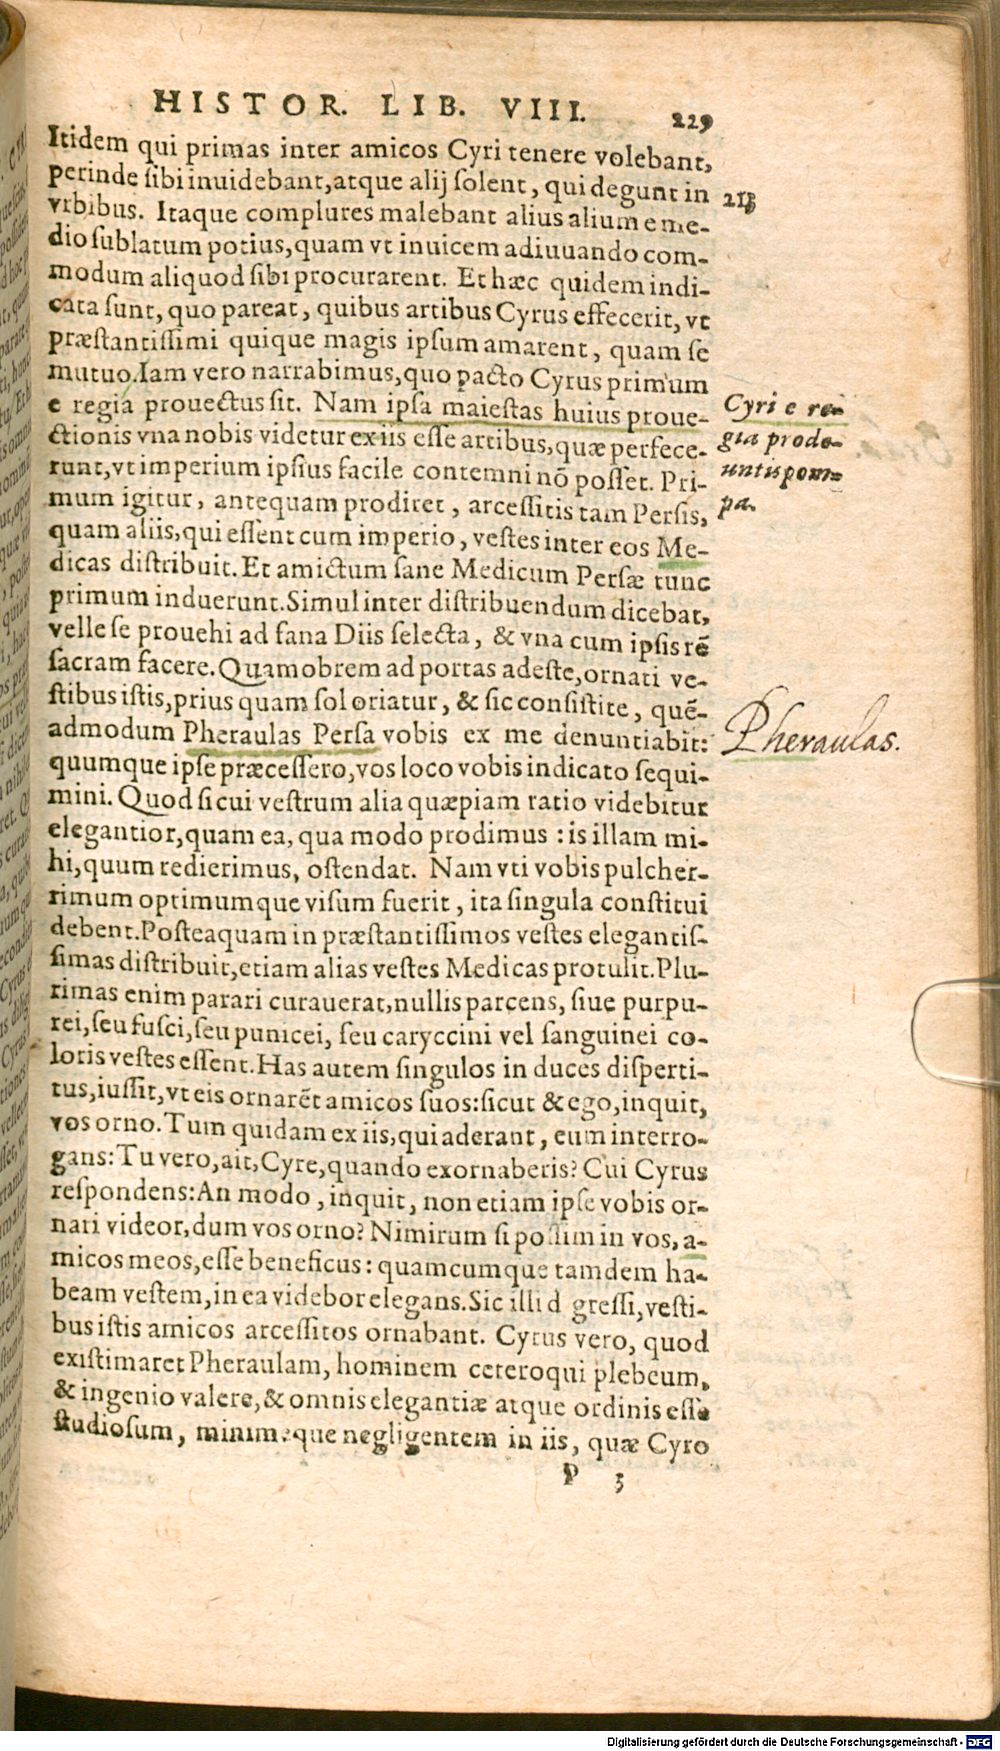 HISTOR. LIB. VIII. 229
Itidem qui primas inter amicos Cyri tenere volebant,
perinde sibi inuidebant, atque alij solent, qui degunt in
vrbibus. Itaque complures malebant alius alium e me-
dio sublatum potius, quam vt inuicem adiuuando com-
modum aliquod sibi procurarent. Et hæc quidem indi-
cata sunt, quo pareat, quibus artibus Cyrus effecerit, vt
præstantissimi quique magis ipsum amarent, quam se
mutuo. Iam vero narrabimus, quo pacto Cyrus primum
e regia prouectus sit. Nam ipsa maiestas huius proue-
ctionis vna nobis videtur ex iis esse artibus, quæ perfece-
runt, vt imperium ipsius facile contemni nō posset. Pri-
mum igitur, antequam prodiret, arcessitis tam Persis,
quam aliis, qui essent cum imperio, vestes inter eos Me-
dicas distribuit. Et amictum sane Medicum Persæ tunc
primum induerunt. Simul inter distribuendum dicebat,
velle se prouehi ad fana Diis selecta, & vna cum ipsis rē
sacram facere. Quamobrem ad portas adeste, ornati ve-
stibus istis, prius quam sol oriatur, & sic consistite, quē-
admodum Pheraulas Persa vobis ex me denuntiabit:
quumque ipse præcessero, vos loco vobis indicato sequi-
mini. Quod si cui vestrum alia quæpiam ratio videbitur
elegantior, quam ea, qua modo prodimus: is illam mi-
hi, quum redierimus, ostendat. Nam vti vobis pulcher-
rimum optimumque visum fuerit, ita singula constitui
debent. Posteaquam in præstantissimos vestes elegantis-
simas distribuit, etiam alias vestes Medicas protulit. Plu-
rimas enim parari curauerat, nullis parcens, siue purpu-
rei, seu fusci, seu punicei, seu caryccini vel sanguinei co-
loris vestes essent. Has autem singulos in duces disperti-
tus, iussit, vt eis ornarēt amicos suos: sicut & ego, inquit,
vos orno. Tum quidam ex iis, qui aderant, eum interro-
gans: Tu vero, ait, Cyre, quando exornaberis? Cui Cyrus
respondens: An modo, inquit, non etiam ipse vobis or-
nari videor, dum vos orno? Nimirum si possim in vos, a-
micos meos, esse beneficus: quamcumque tamdem ha-
beam vestem, in ea videbor elegans. Sic illi d gressi, vesti-
bus istis amicos arcessitos ornabant. Cyrus vero, quod
existimaret Pheraulam, hominem ceteroqui plebeum,
& ingenio valere, & omnis elegantiæ atque ordinis esse
studiosum, minimeque negligentem in iis, quæ Cyro
P 3
Cyri e re-
gia prode-
untis pom-
pa.
Pheraulas.
Digitalisierung gefördert durch die Deutsche Forschungsgemeinschaft - DFG